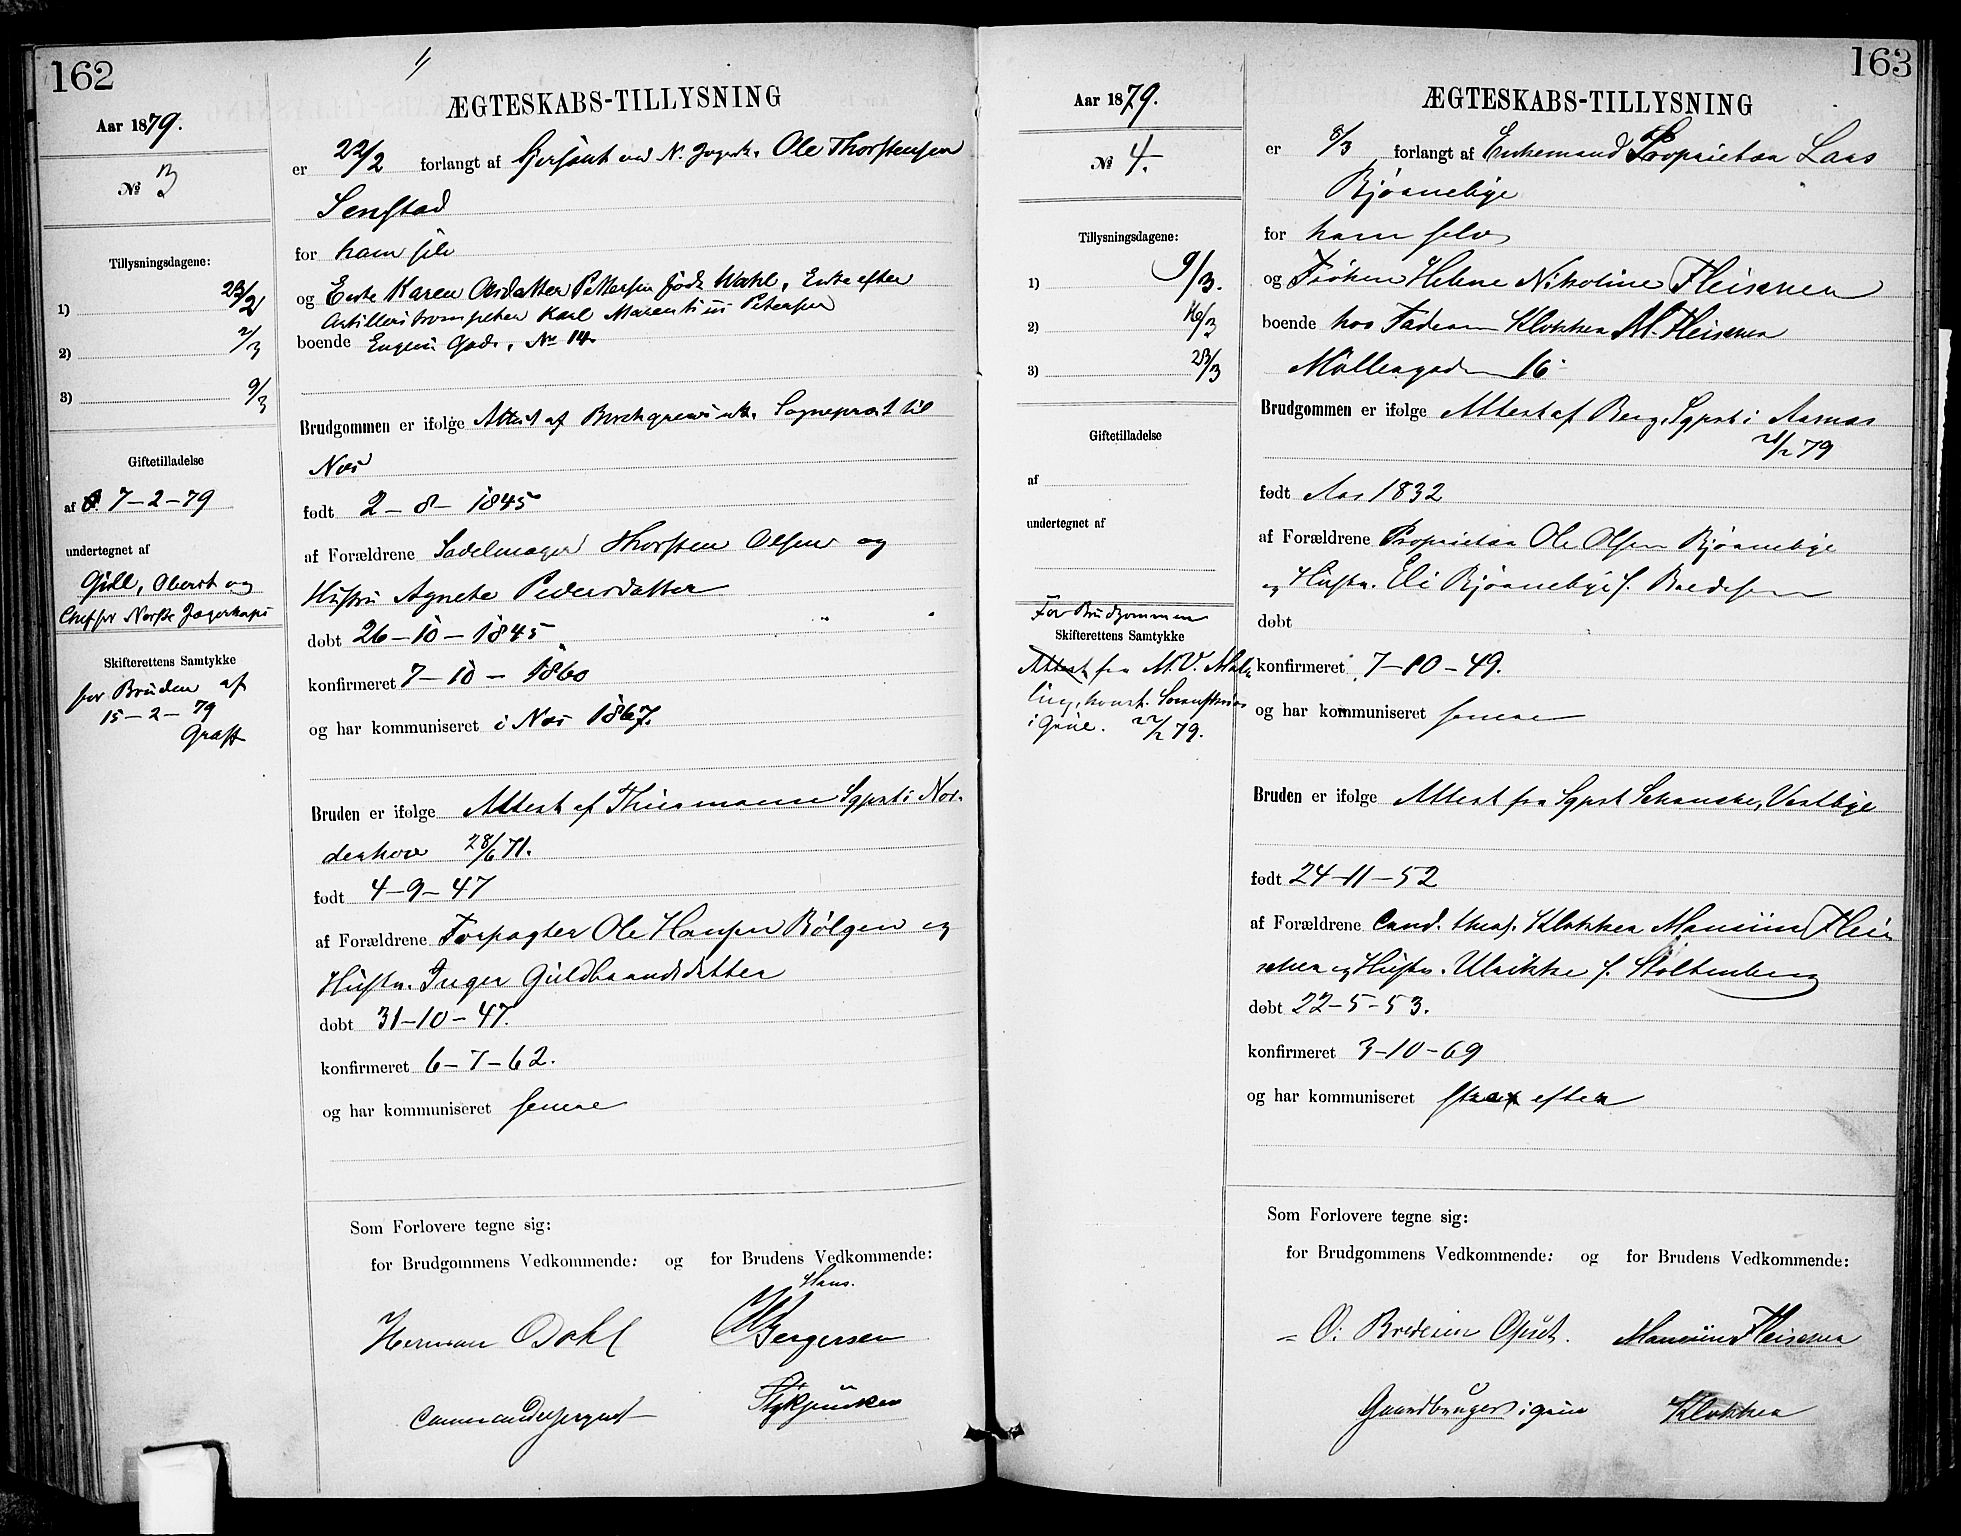 162
Aar 1879.
№ 3
Tillysningsdagene:
1) 23/2
2) 2/3
3) 9/3
Giftetilladelse
af 7-2-79
undertegnet af
Gill, Oberst og
Chef for Norske Jægerkorps
Skifterettens Samtykke
for Bruden af
15-2-79
ÆGTESKABS-TILLYSNING
er 22/2 forlangt af Sersant ved N. Jægerk. Ole Thorstensen
Senstad
for ham selv
og Enke Karen Olsdatter Pettersen født Wahl, Enke efter
Artilleritrompeter Karl Marentius Petersen
boende Eugeni Gade, No 14.
Brudgommen er ifølge Attest af Borchgrevink, Sogneprest til
Næs
født 2-8-1845
af Forældrene Sadelmager Thorsten Olsen og
Hustru Agnete Pedersdatter
døbt 26-10-1845
konfirmeret 7-10-1860
og har kommuniseret i Næs 1867.
Bruden er ifølge Attest af Thurmann Sgprst i Nor-
derhov 28/6 71.
født 4-9-47
af Forældrene Forpagter Ole Hansen Bølgen og
Hustru Inger Guldbrandsdatter
døbt 31-10-47.
konfirmeret 6-7-62.
og har kommuniseret senere
Som Forlovere tegne sig:
for Brudgommens Vedkommende: og for Brudens Vedkommende:
Hans
Herman Dahl Bergersen
Commandersergent Stykjunker
163
Aar 1879.
№ 4.
Tillysningsdagene:
1) 9/3.
2) 16/3
3) 23/3
Giftetilladelse
af
undertegnet af
For Brudgommen
Skifterettens Samtykke
Attest fra M. V. Mal-
ling, konst. Sorenskriver
i Grue. 22/2 79.
ÆGTESKABS-TILLYSNING
er 8/3 forlangt af Enkemand Proprietær Lars
Bjørnebye
for ham selv
og Frøken Helene Nikoline Fleischer
boende hos Faderen Klokker M. Fleischer
Møllergaden 16
Brudgommen er ifølge Attest af Berg, Sgprst i Aasnæs
/2 79
født Aar 1832
af Forældrene Proprietær Ole Olsen Bjørnebye
og Hustru Eli Bjørnebye f.
døbt
konfirmeret 7-10-49.
og har kommuniseret senere
Bruden er ifølge Attest fra Sgprst Schanche, Vestbye
født 24-11-52
af Forældrene Cand. theol. Klokker Mancius Flei-
scher og Hustru Ulrikke f. Stoltenberg
døbt 22-5-53.
konfirmeret 3-10-69
og har kommuniseret strax efter
Som Forlovere tegne sig:
for Brudgommens Vedkommende: og for Brudens Vedkommende:
O. Opset. Mancius Fleischer
Gaardbruger i Grue Klokker